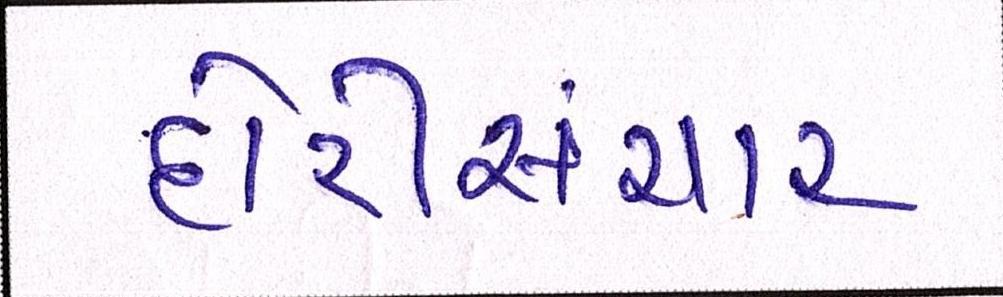 દોરીસંચાર